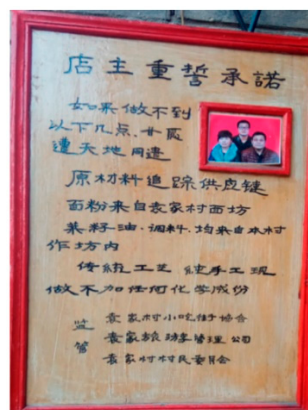 店主重誓承諾
如果做不到
以下几点、甘愿
遭天地同遣
原材料追踪供应链
面粉来自袁家村面坊
菜籽油·調料、均来自本村
作坊内
传統工艺 純手工现
做不加任何化学成份
监管
袁家村小吃街协会
袁家村旅游管理公司
袁家村村民委員会